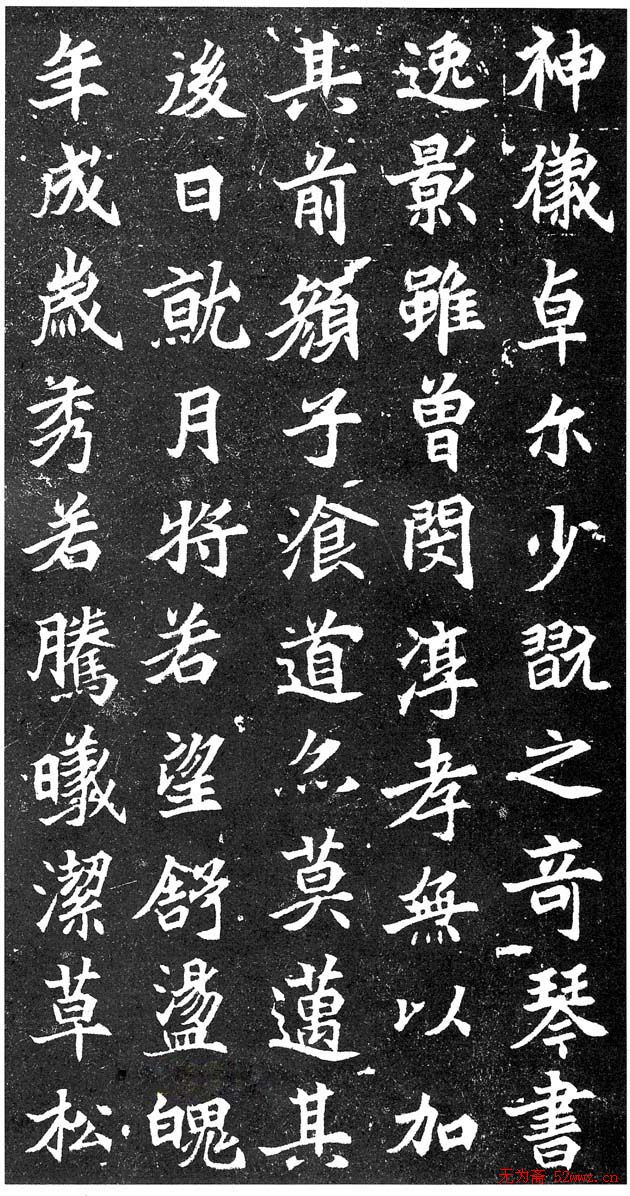 神儀卓尔少翫之竒琴書
逸影雖曽閔淳孝無以加
其前顏子湌道亦莫邁其
後日就月將若望舒盪魄
年成歲秀若騰曦潔草松
无为斋·52wwz.cn